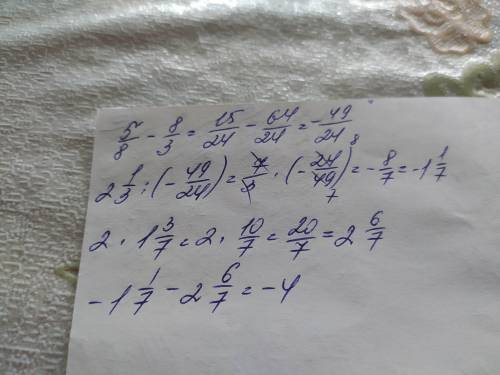 5/8 - 8/3 = 15/24 - 64/24 = -49/24
2 1/3 : (-49/24) = 7/3 · (-24/49) 8 7 = -8/7 = -1 1/7
2 · 1 3/7 = 2 · 10/7 = 20/7 = 2 6/7
-1 1/7 - 2 6/7 = -4